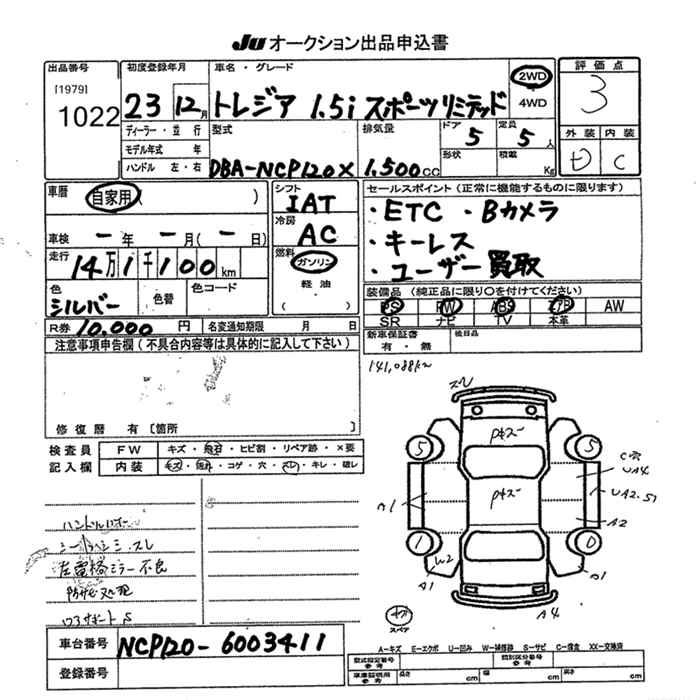 Ju オークション出品申込書
出品番号
[1979]
1022
初度登録年月
23 12月
ディーラー・並行
モデル年式 年
ハンドル 左・右
車名・グレード
トレジア 1.5i スポーツリミテッド
2WD
4WD
型式
DBA-NCP120X
排気量
1,500cc
ドア
5
形状
定員
5人
積載
Kg
評価点
3
外装 内装
D C
車歴
自家用 ( )
車検 ー年 ー月(ー日)
走行
14万1千100km
色
シルバー
色替
色コード
R券 10,000円
名変通知期限 月 日
シフト
IAT
冷房
AC
燃料
ガソリン
軽油
( )
セールスポイント(正常に機能するものに限ります)
・ETC ・Bカメラ
・キーレス
・ユーザー買取
装備品(純正品に限り○を付けてください)
PS PW ABS エアB AW
SR ナビ TV 本革
新車保証書
有・無
後日品
141,088km
注意事項申告欄(不具合内容等は具体的に記入して下さい)
修復歴 有 [箇所
検査員
記入欄
FW キズ・飛石・ヒビ割・リペア跡・×要
内装 キズ・汚れ・コゲ・穴・スレ・キレ・破レ
シートヘン シミ、スレ
左電格ミラー不良
防サビ処理
スレ
Pキズ
Pキズ
5
5
1
0
A1
W2
A1
C穴
UA4
UA2.S1
A2
A1
A4
スペア
車台番号 NCP120-6003411
登録番号
A-キズ E-エクボ U-凹み W-補修跡 S-サビ C-腐食 XX-交換済
型式指定番号
参考
類別区分番号
参考
車庫証明用
参考
長さ cm
幅 cm
高さ cm